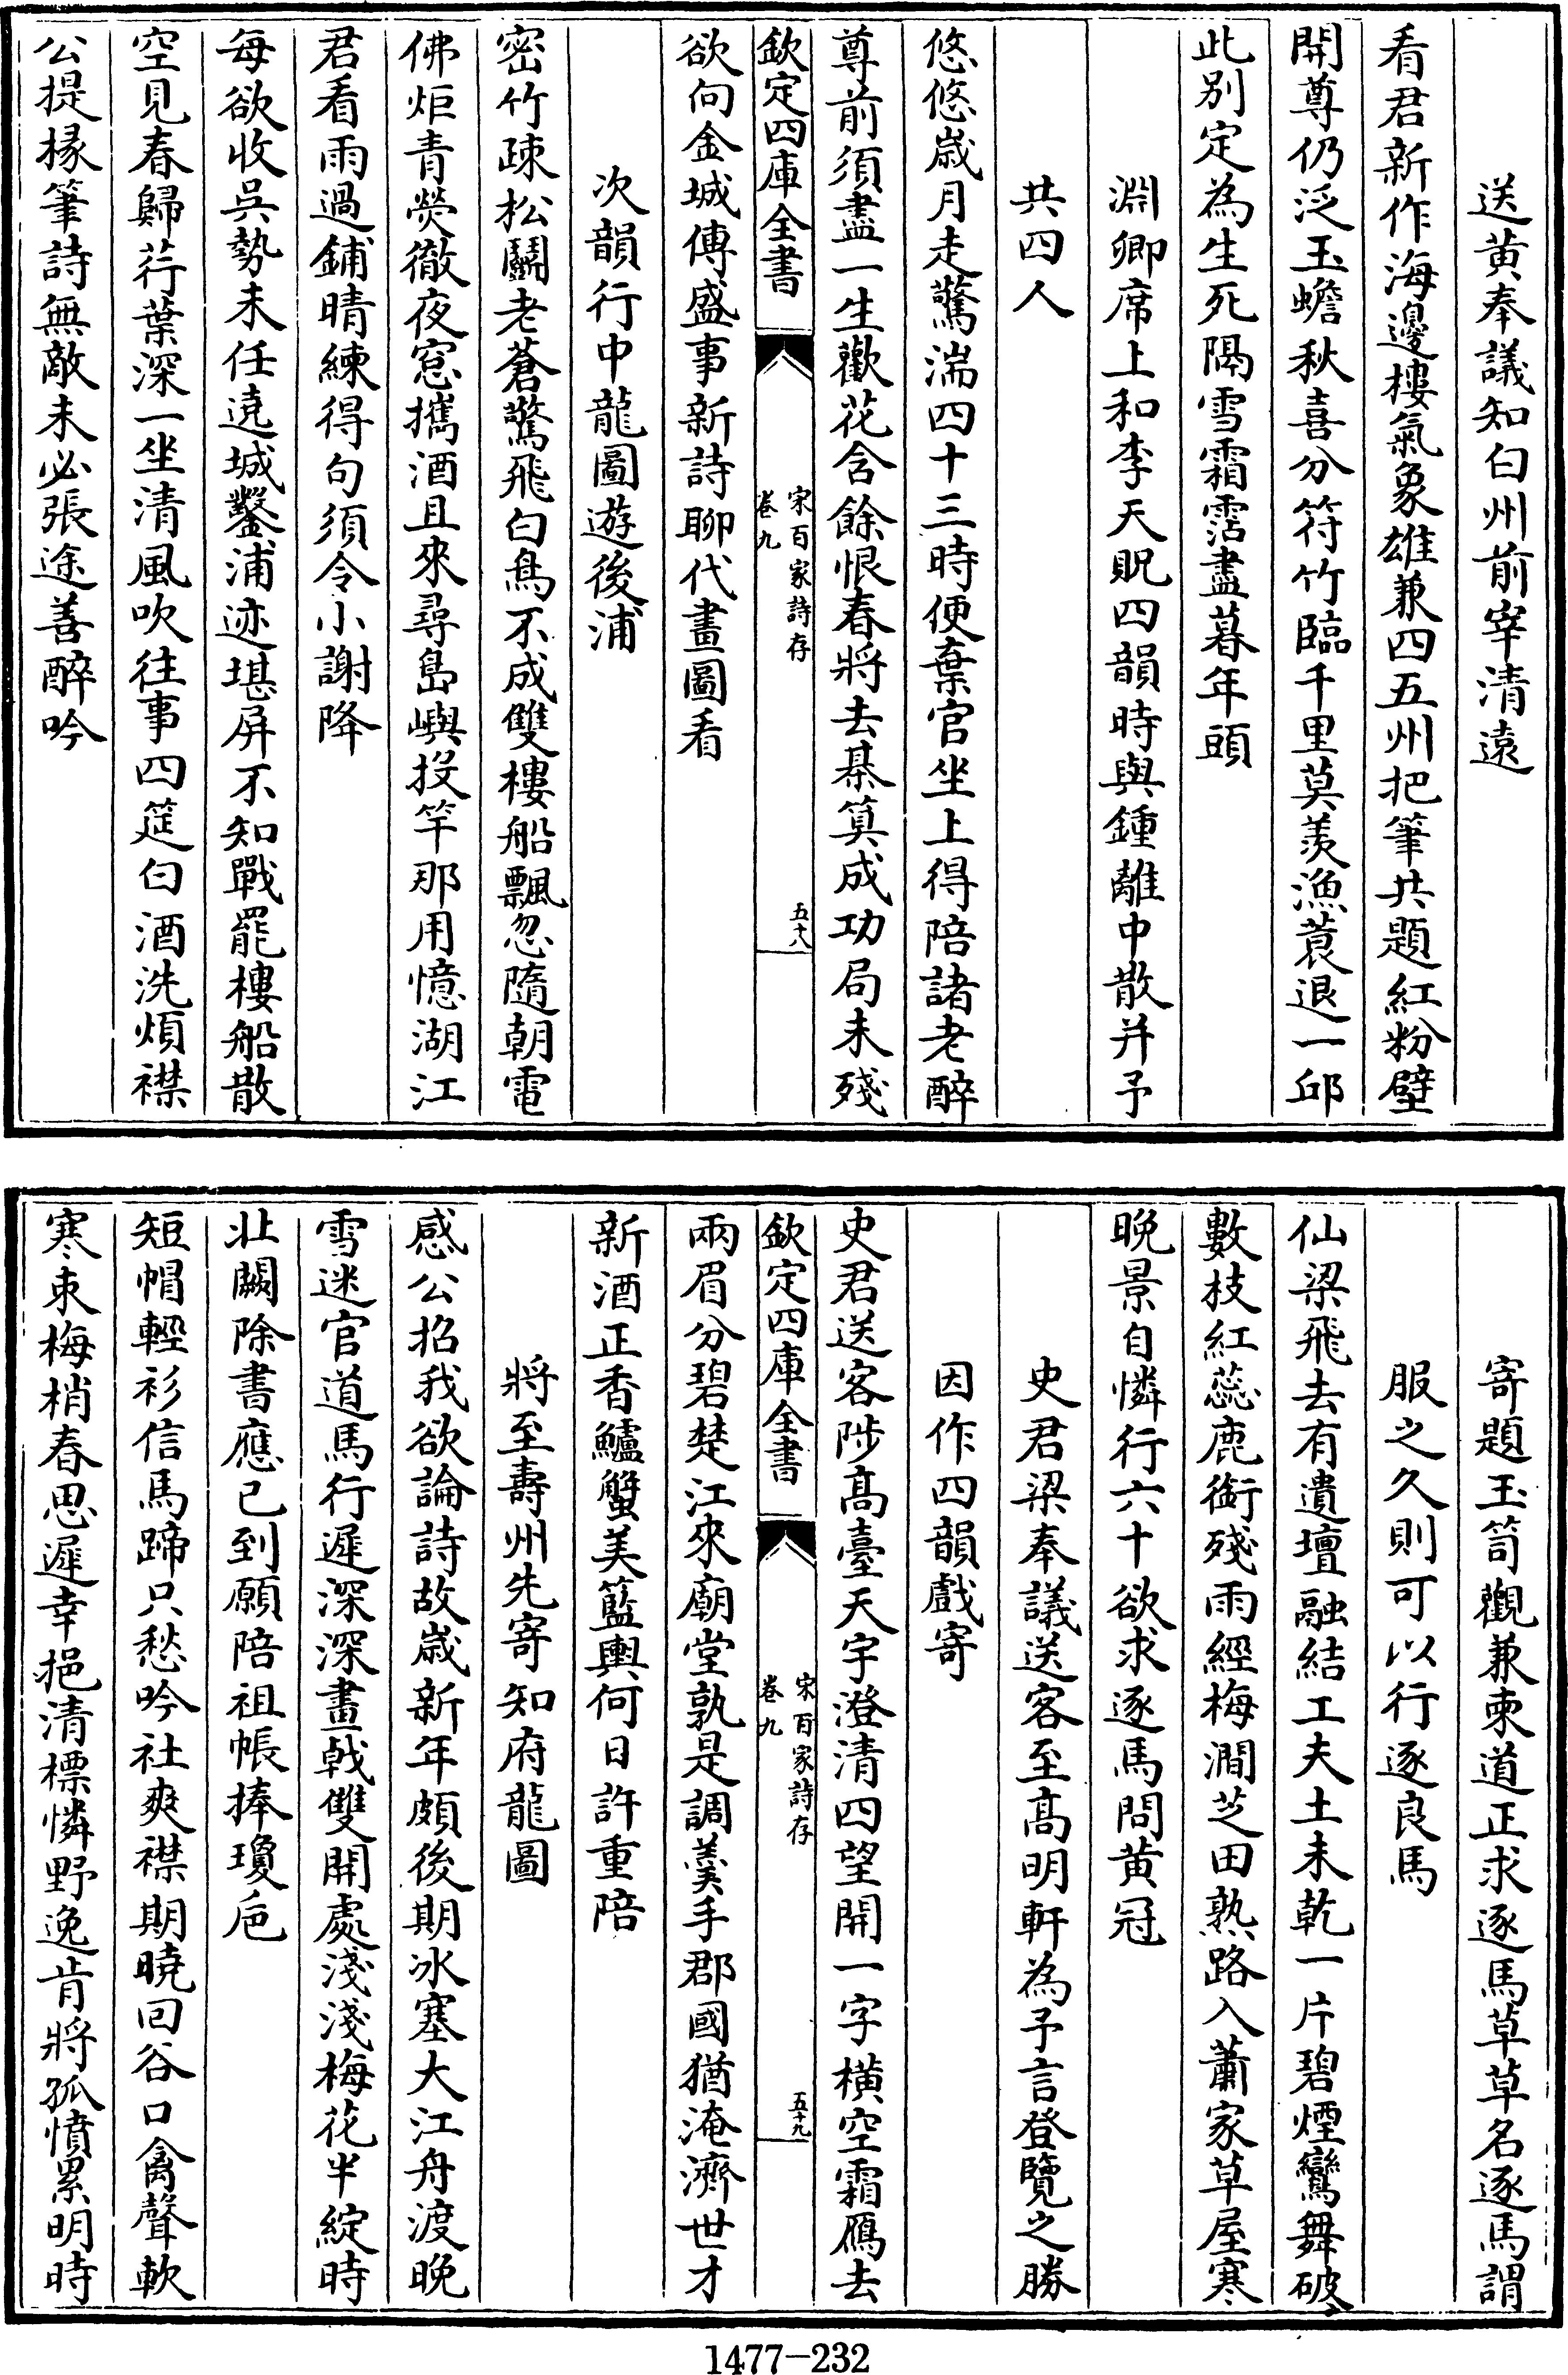 送黄奉議知白州前宰清遠
看君新作海邊樓氣象雄兼四五州把筆共題紅粉壁
開尊仍泛玉蟾秋喜分符竹臨千里莫羨漁蓑退一邱
此别定為生死隔雪霜霑盡暮年頭
淵卿席上和李天貺四韻時與鍾離中散并予
共四人
悠悠歳月走驚湍四十三時便棄官坐上得陪諸老醉
尊前須盡一生歡花含餘恨春將去棊算成功局未殘
欽定四庫全書
宋百家詩存
卷九
五十八
欲向金城傳盛事新詩聊代畫圖看
次韻行中龍圖遊後浦
密竹疎松鬭老蒼驚飛白鳥不成雙樓船飄忽隨朝電
佛炬青熒徹夜窓攜酒且來尋島嶼投竿那用憶湖江
君看雨過鋪晴練得句須令小謝降
每欲收吳勢未任遶城鑿浦迹堪屏不知戰罷樓船散
空見春歸荇葉深一坐清風吹往事四筵白酒洗煩襟
公提椽筆詩無敵未必張途善醉吟
寄題玉笥觀兼柬道正求逐馬草草名逐馬謂
服之久則可以行逐良馬
仙梁飛去有遺壇融結工夫土未乾一片碧煙鸞舞破
數枝紅蕊鹿銜殘雨經梅澗芝田熟路入蕭家草屋寒
晚景自憐行六十欲求逐馬問黄冠
史君梁奉議送客至髙明軒為予言登覽之勝
因作四韻戲寄
史君送客陟髙臺天宇澄清四望開一字横空霜鴈去
欽定四庫全書
宋百家詩存
卷九
五十九
兩眉分碧楚江來廟堂孰是調羹手郡國猶淹濟世才
新酒正香鱸蟹美籃輿何日許重陪
將至壽州先寄知府龍圖
感公招我欲論詩故歳新年頗後期冰塞大江舟渡晚
雪迷官道馬行遲深深畫戟雙開處淺淺梅花半綻時
壯闕除書應已到願陪祖帳捧瓊巵
短帽輕衫信馬蹄只愁吟社爽襟期曉回谷口禽聲軟
寒束梅梢春思遲幸挹清標憐野逸肯將孤憤累明時
1477-232